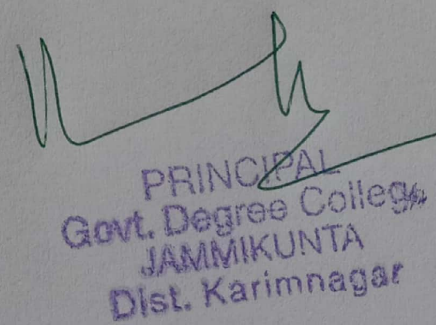 PRINCIPAL
Govt. Degree College
JAMMIKUNTA
Dist. Karimnagar